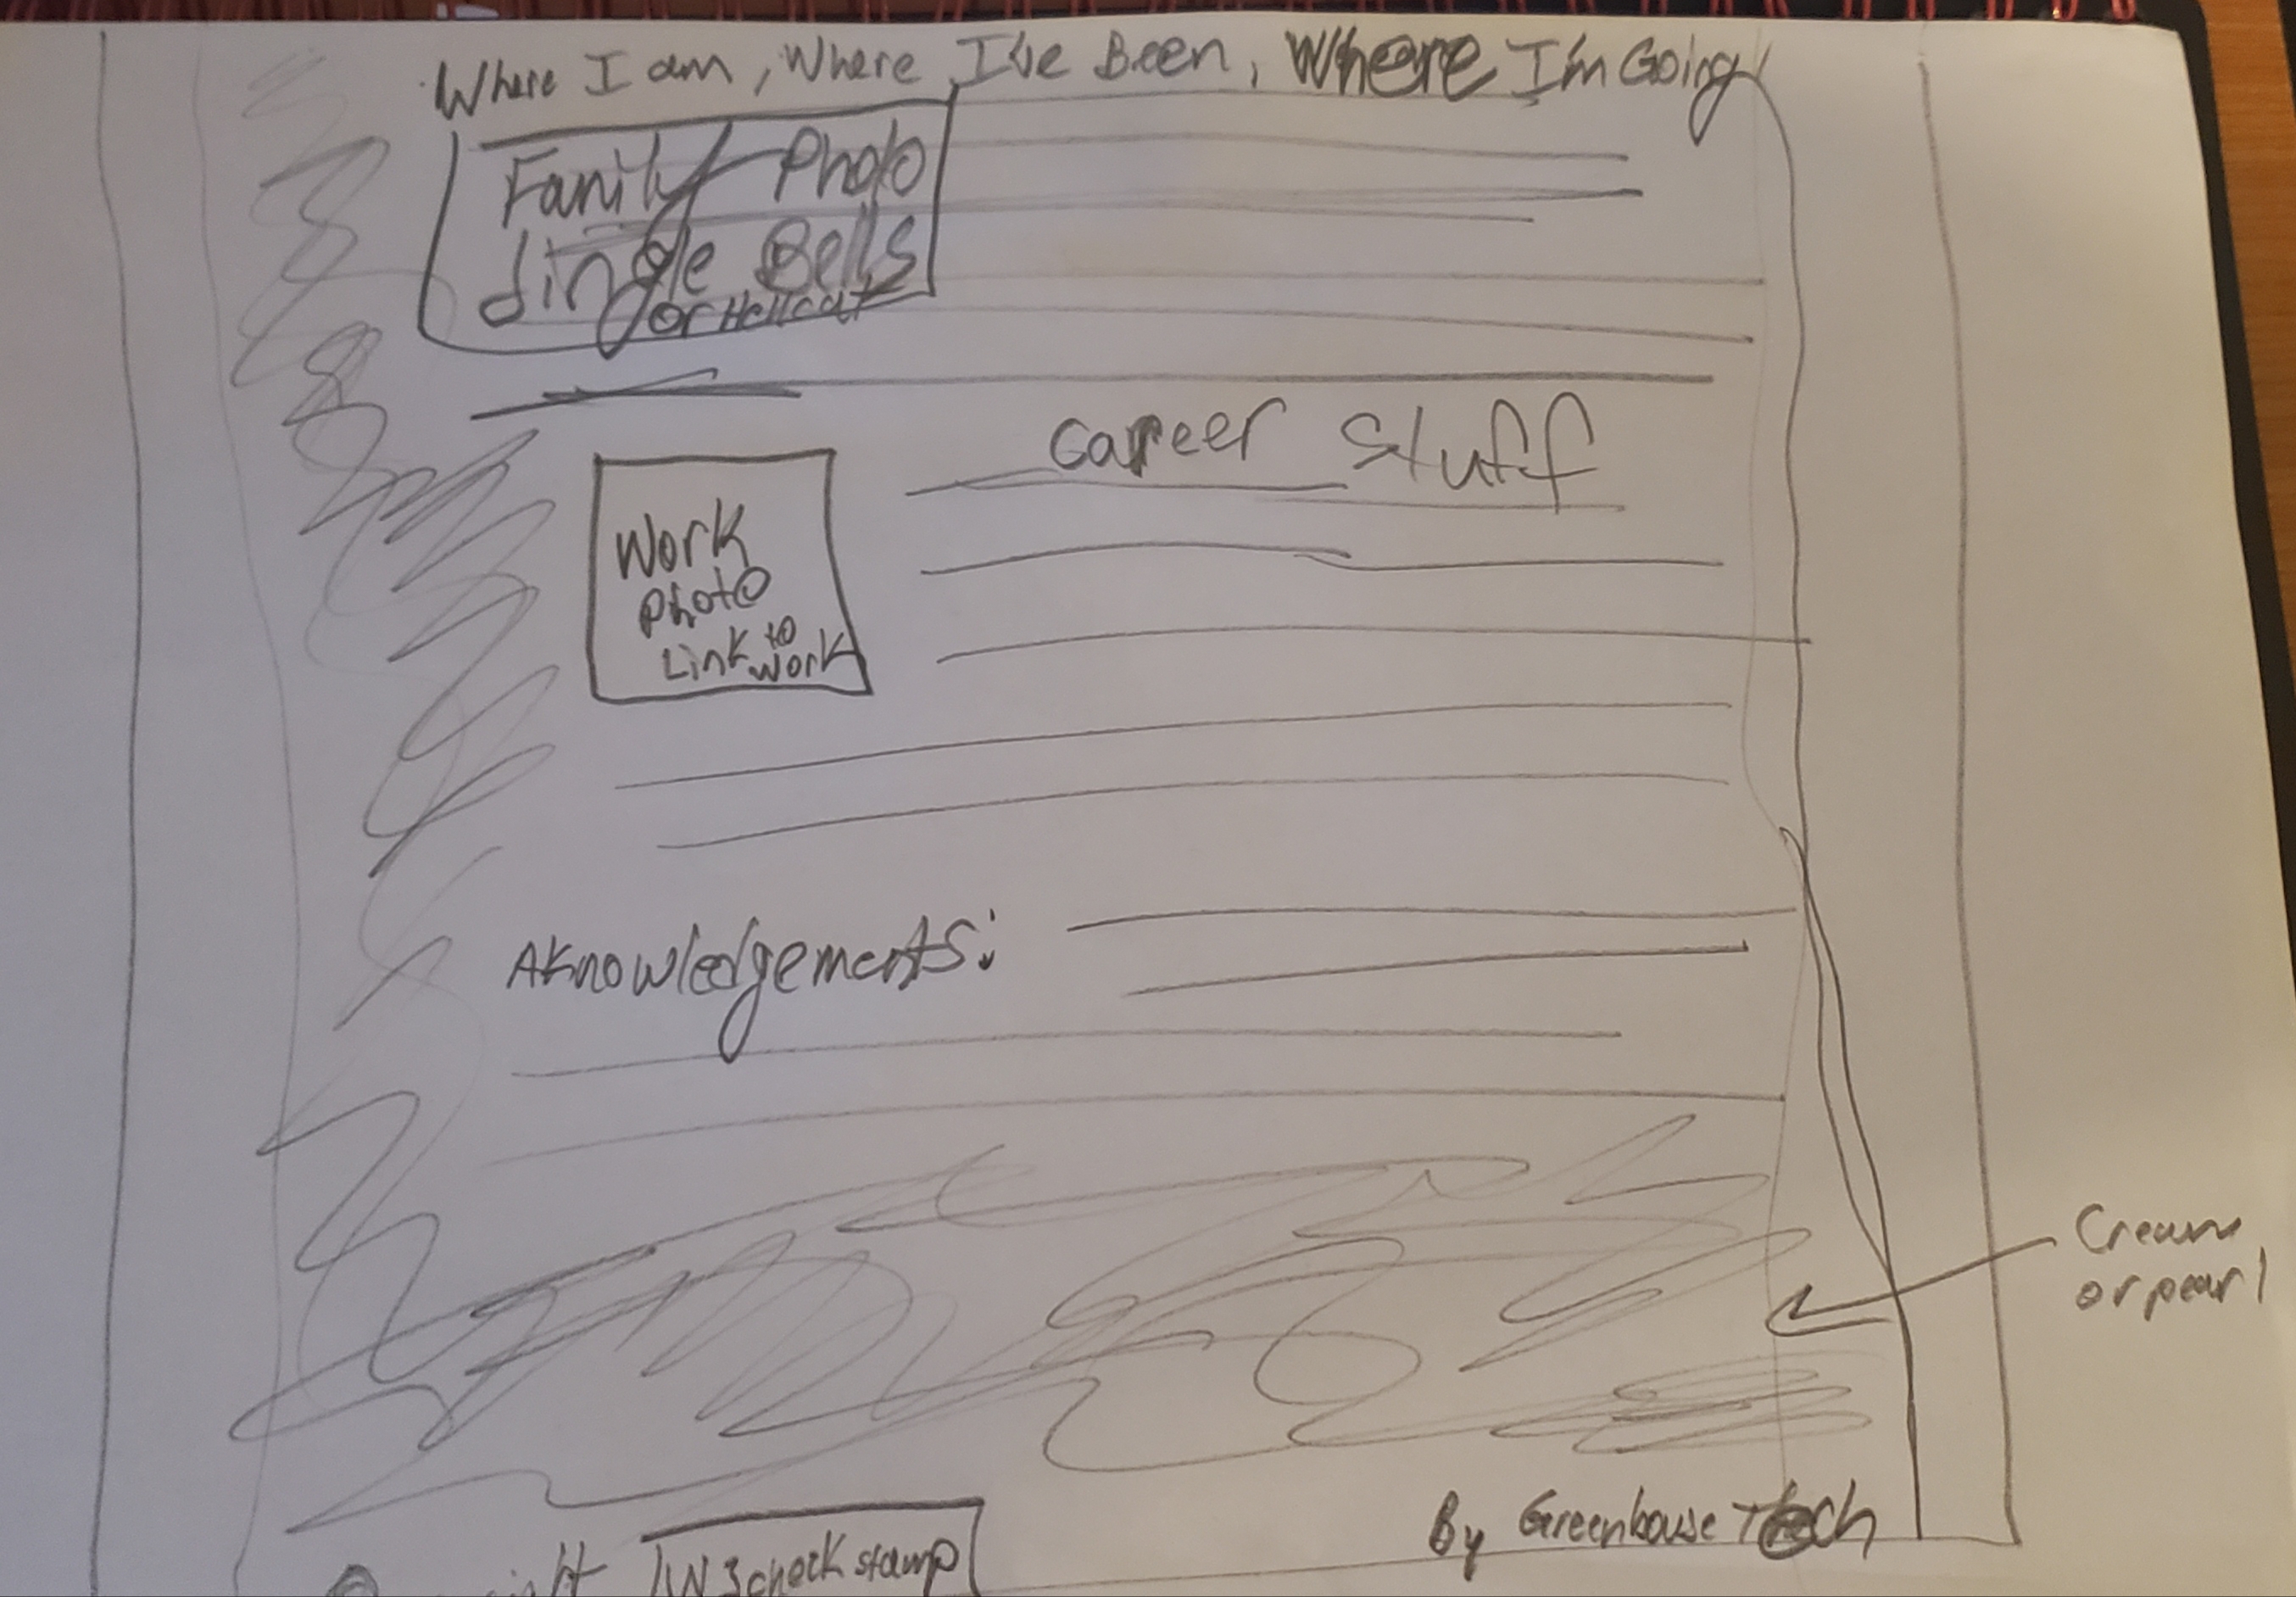 Where I am, Where I've Been, Where I'm Going
Family Photo
Jingle Bells
or Hellcat
Career Stuff
Work
Photo
Link to
work
AKnowledgements:
Cream
or pearl
By Greenhouse Tech
W3check stamp